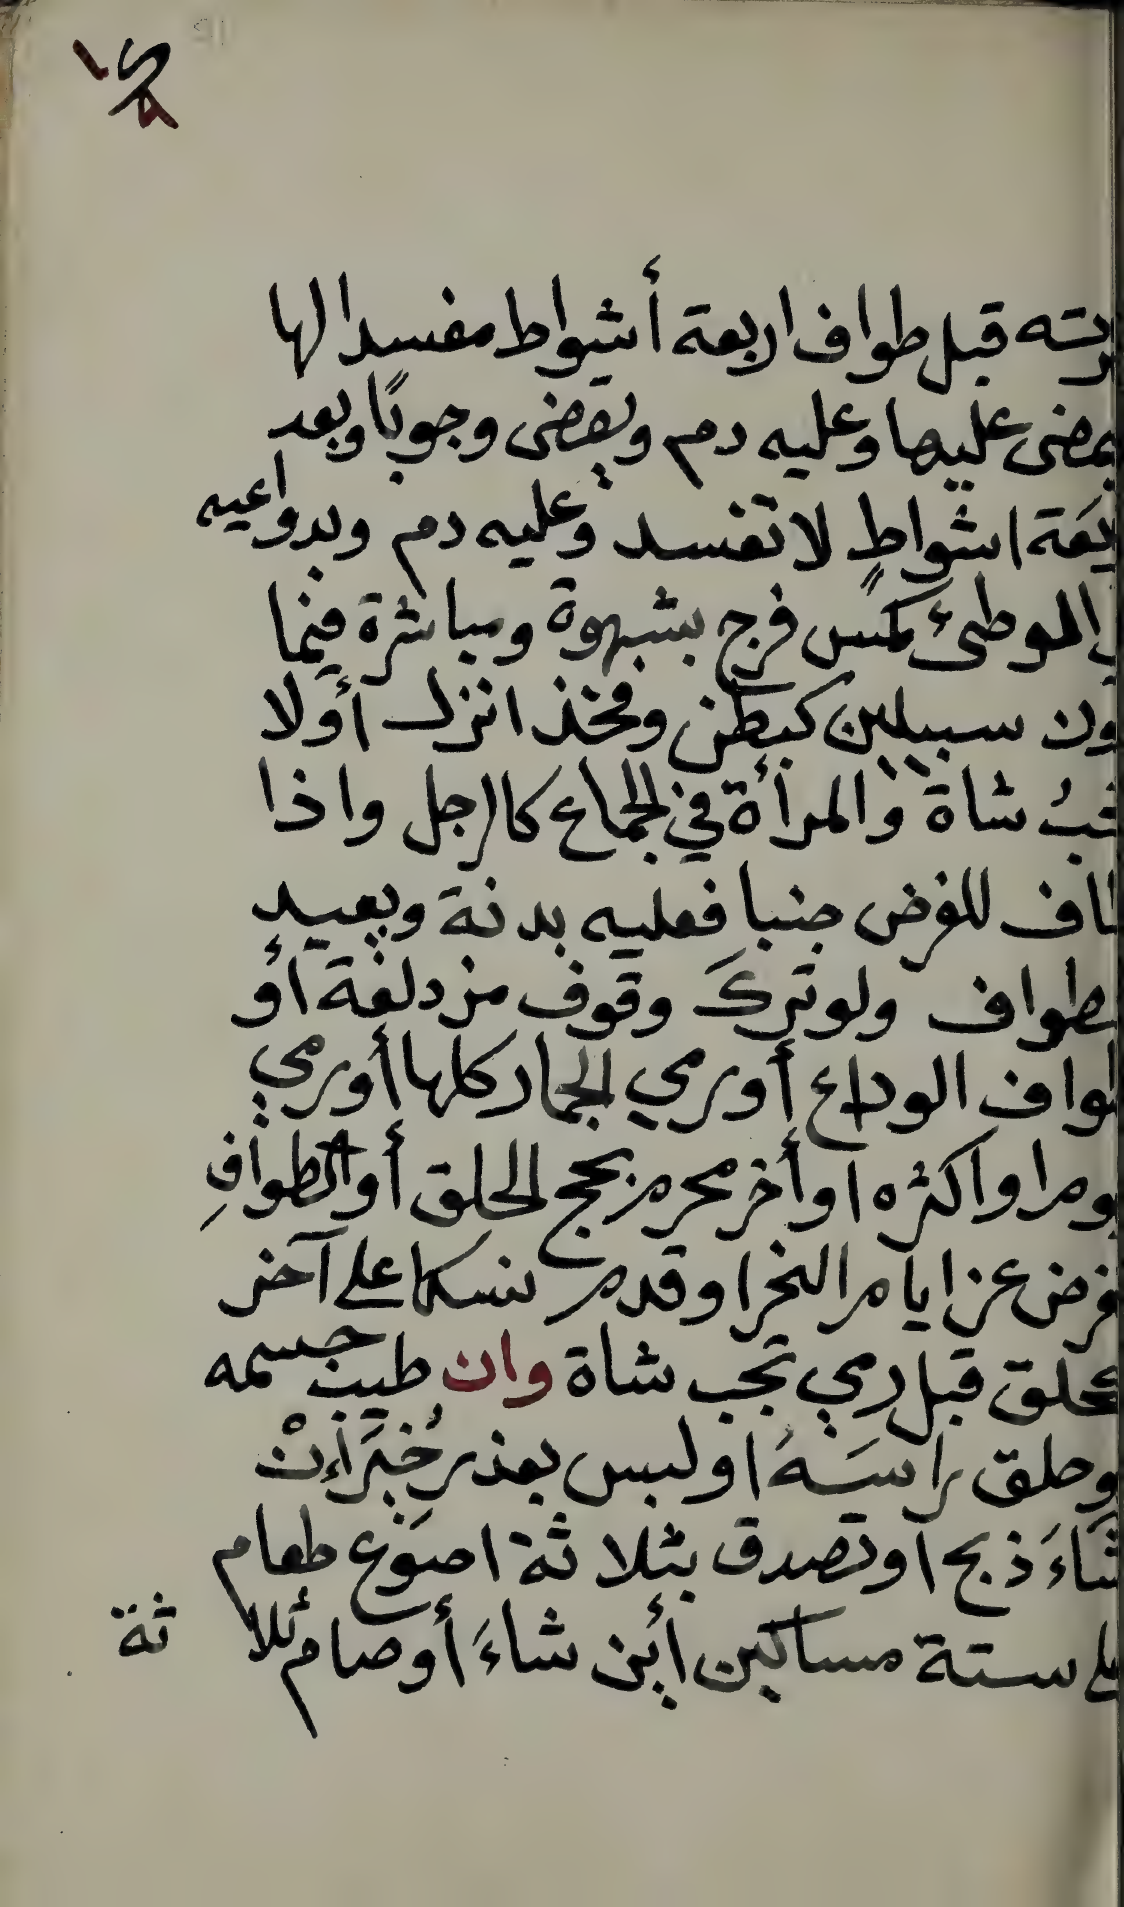 قبل طواف اربعة أشواط مفسدا لها
عليها وعليه دم ويقضى وجوبًا وبعد
اشواطٍ لا تفسد وعليه دم وبدواعيه
الموطئ كمسّ فرج بشهوة ومباشرة فيما
سبيلين كبطن وفخذ انزل أولا
شاة والمرأة في الجماع كالرجل واذا
للفرض جنبا فعليه بدنة ويعيد
ولو تركَ وقوف مزدلفة أو
الوداع أو رمي الجمار كلها أو رمي
او اكثره او أخر محرم بحج الحلق أو الطوافِ
عن ايام النحر او قدم نسكا على آخر
قبل رمي تجب شاة وان طيب جسمه
وحلق راسَهُ او لبس بعذر خُيّرَ إنْ
شَاءَ ذبح او تصدق بثلاثة اصوُع طعام
ستة مساكين أين شاءَ أو صام ثلا
ثة